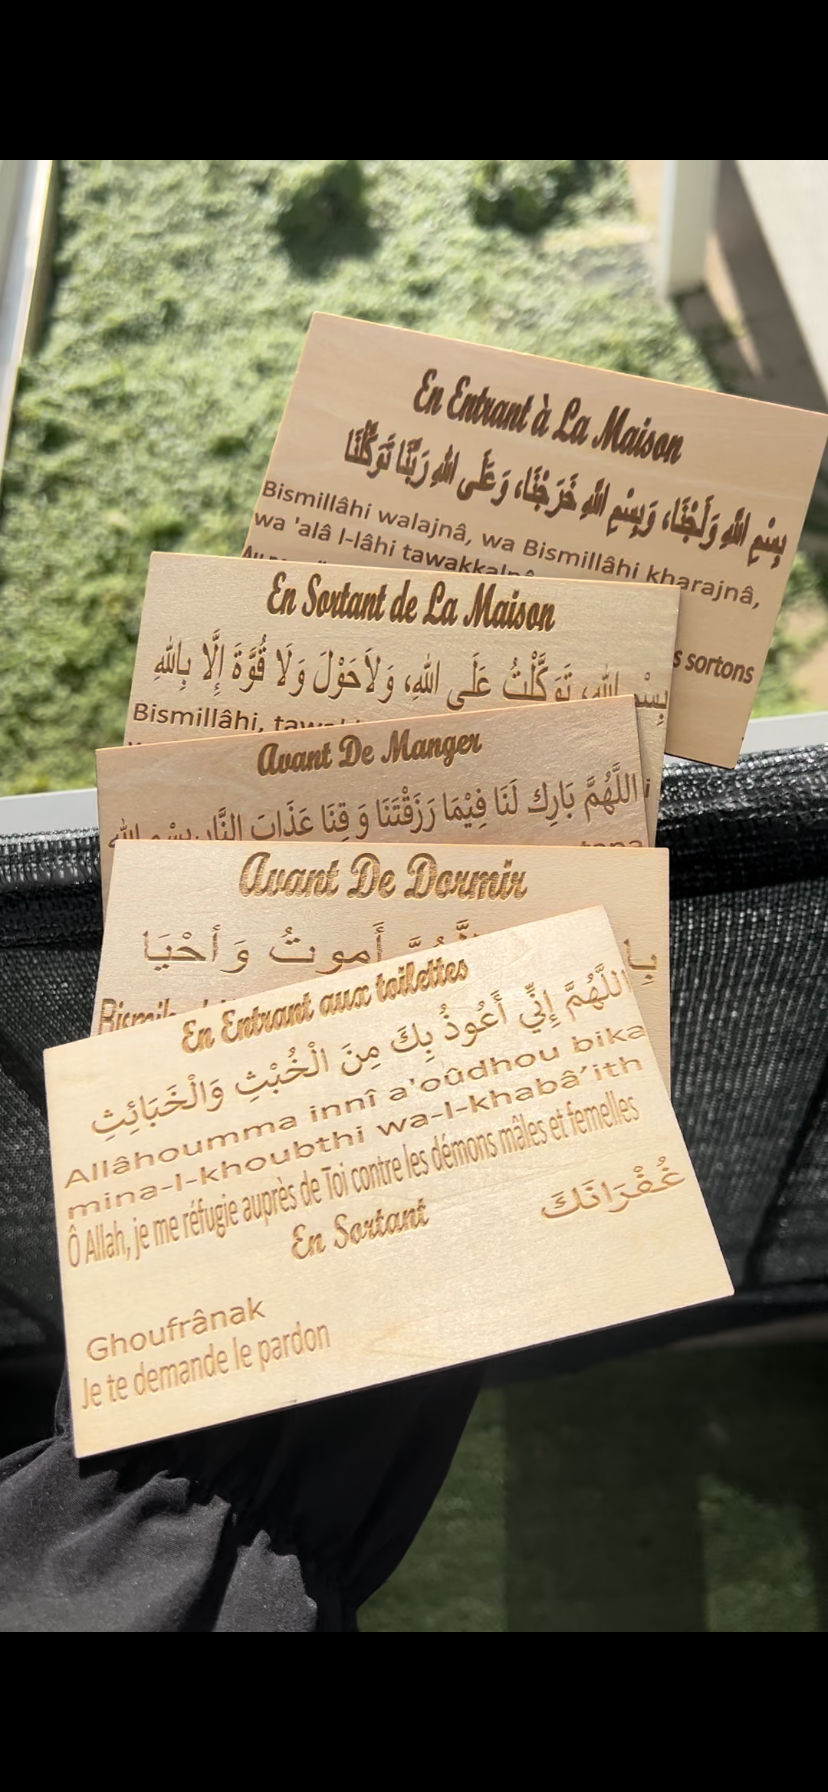 En Entrant à La Maison
بِسْمِ اللَّهِ وَلَجْنَا، وَبِسْمِ اللَّهِ خَرَجْنَا، وَعَلَى اللهِ رَبِّنَا تَوَكَّلْنَا
Bismillâhi walajnâ, wa Bismillâhi kharajnâ,
wa 'alâ l-lâhi tawakkalnâ
s sortons
En Sortant de La Maison
بِسْمِ اللهِ، تَوَكَّلْتُ عَلَى اللهِ، وَلَاحَوْلَ وَلَا قُوَّةَ إِلَّا بِاللهِ
Bismillâhi,
Avant De Manger
اللَّهُمَّ بَارِك لَنَا فِيْمَا رَزَقْتَنَا وَ قِنَا عَذَابَ النَّار بِسْمِ الله
Avant De Dormir
أَموتُ وَأحْيَا
En Entrant aux toilettes
اللَّهُمَّ إِنِّي أَعُوذُ بِكَ مِنَ الْخُبْثِ وَالْخَبَائِثِ
Allâhoumma innî a'oûdhou bika
mina-l-khoubthi wa-l-khabâ’ith
Ô Allah, je me réfugie auprès de Toi contre les démons mâles et femelles
En Sortant
غُفْرَانَكَ
Ghoufrânak
Je te demande le pardon